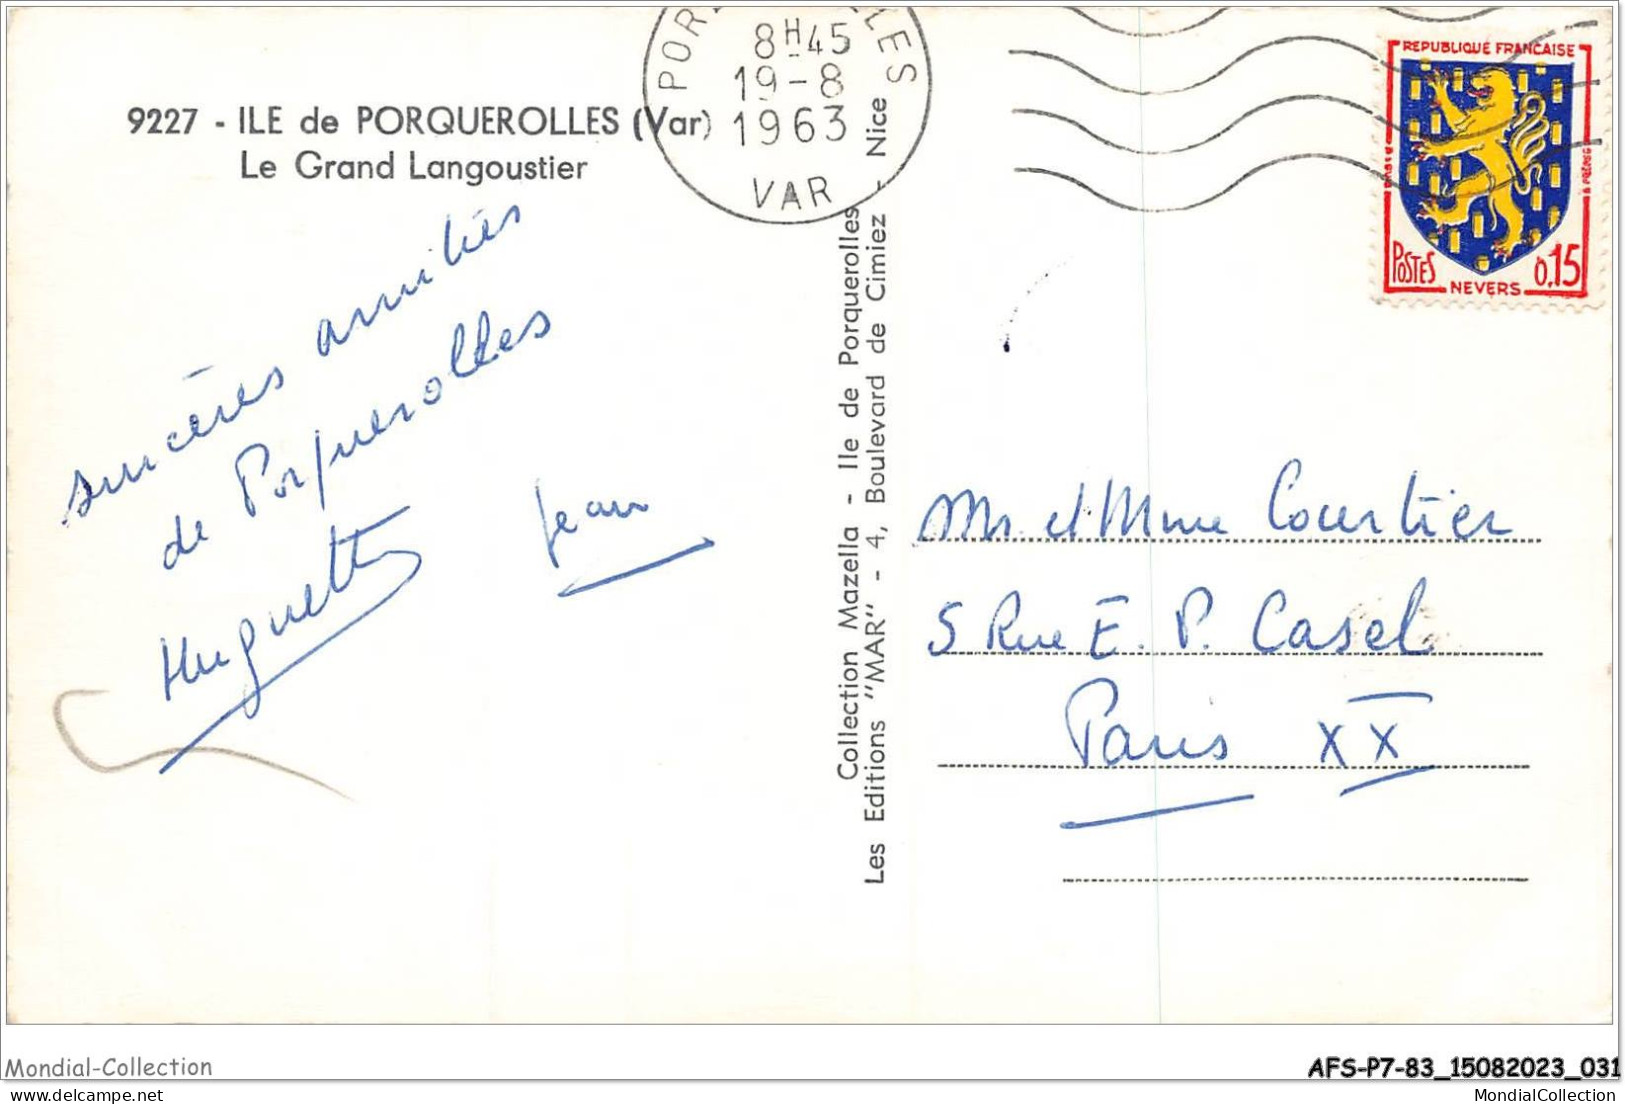 9227 - ILE de PORQUEROLLES (Var)
Le Grand Langoustier
8H45
19-8
1963
VAR
REPUBLIQUE FRANCAISE
POSTES
0,15
NEVERS
sincères amitiés
de Porquerolles
Huguette
Jean
Collection Mazella - Ile de Porquerolles
Les Editions "MAR" - 4, Boulevard de Cimiez - Nice
Mr et Mme Courtier
5 Rue E. P. Casel
Paris XX
Mondial-Collection
AFS-P7-83_15082023_031
delcampe.net
MondialCollection